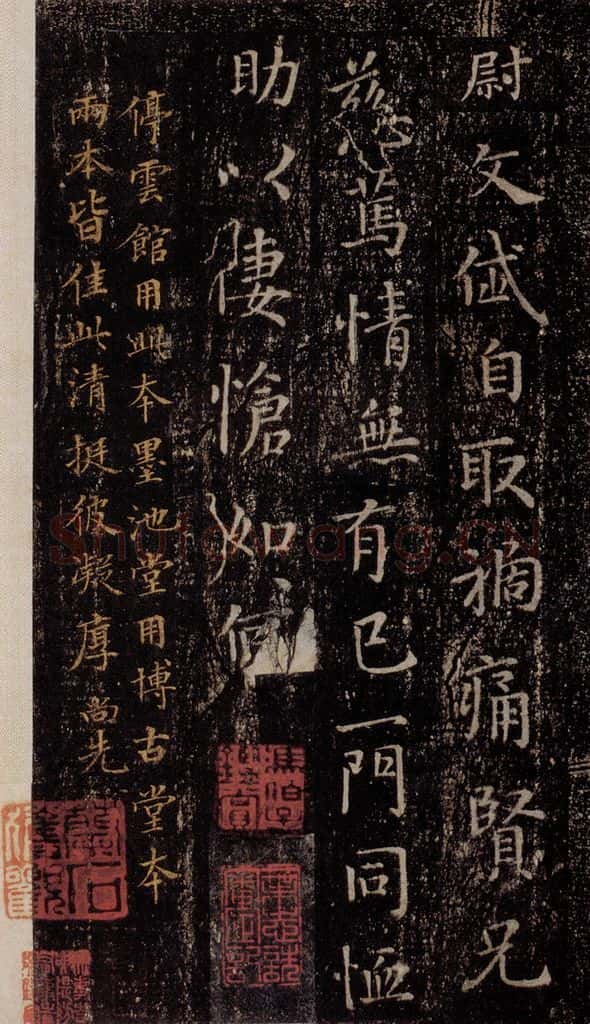 尉文岱自取禍痛賢兄
慈篤情無有已一門同恤
助以悽愴如何
停雲館用此本墨池堂用博古堂本
兩本皆佳此清挺彼凝厚 尚先
Shufawang.cn